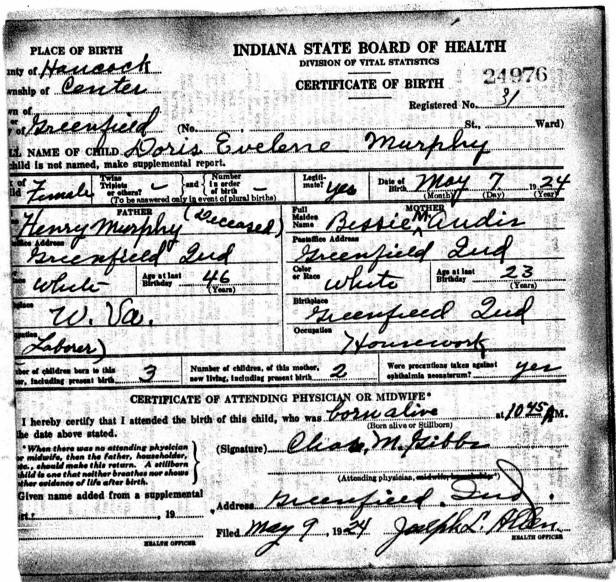 PLACE OF BIRTH
INDIANA STATE BOARD OF HEALTH
DIVISION OF VITAL STATISTICS
nty of Hancock
CERTIFICATE OF BIRTH 24976
nship of Center
Registered No. 31
wn of
y of Greenfield (No. , St., Ward)
LL NAME OF CHILD Doris Evelene Murphy
child is not named, make supplemental report.
x of ild Female Twins Triplets or others? – and Number in order of birth – Legiti- mate? yes Date of Birth May 7 1924
(To be answered only in event of plural births) (Month) (Day) (Year)
FATHER
Henry Murphy (Deceased)
office Address
Greenfield Ind
White Age at last Birthday 46 (Years)
place
W. Va.
pation
Laborer)
MOTHER
Full Maiden Name Bessie M. Audis
Postoffice Address
Greenfield Ind
Color or Race White Age at last Birthday 23 (Years)
Birthplace
Greenfield Ind
Occupation
Housework
ber of children born to this er, including present birth 3 Number of children, of this mother, now living, including present birth 2 Were precautions taken against ophthalmia neonatorum? yes
CERTIFICATE OF ATTENDING PHYSICIAN OR MIDWIFE*
I hereby certify that I attended the birth of this child, who was born alive at 10 45 P M.
(Born alive or Stillborn)
he date above stated.
* When there was no attending physician
or midwife, then the father, householder,
etc., should make this return. A stillborn
child is one that neither breathes nor shows
other evidence of life after birth.
(Signature) Chas. M. Gibbs
(Attending physician, midwife
Given name added from a supplemental
rt. , 19
Address Greenfield, Ind.
Filed May 9, 1924 Joseph L. Allen
HEALTH OFFICER HEALTH OFFICER